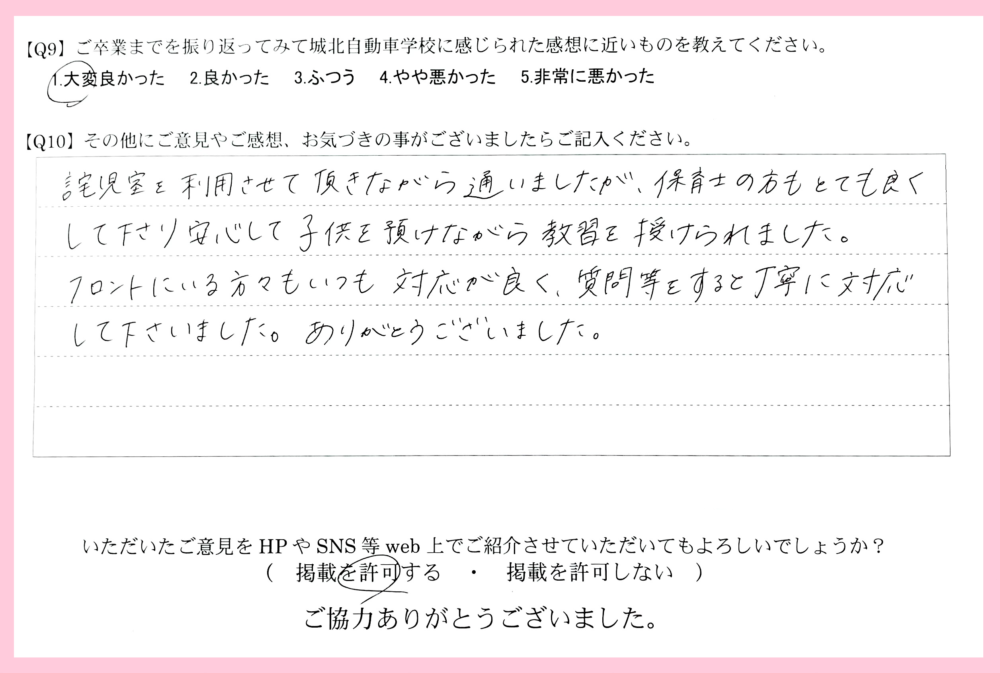 【Q9】ご卒業までを振り返ってみて城北自動車学校に感じられた感想に近いものを教えてください。
1.大変良かった 2.良かった 3.ふつう 4.やや悪かった 5.非常に悪かった
【Q10】その他にご意見やご感想、お気づきの事がございましたらご記入ください。
託児室を利用させて頂きながら通いましたが、保育士の方もとても良く
して下さり安心して子供を預けながら教習を授けられました。
フロントにいる方々もいつも対応が良く、質問等をすると丁寧に対応
して下さいました。ありがとうございました。
いただいたご意見をHPやSNS等web上でご紹介させていただいてもよろしいでしょうか？
( 掲載を許可する ・ 掲載を許可しない )
ご協力ありがとうございました。